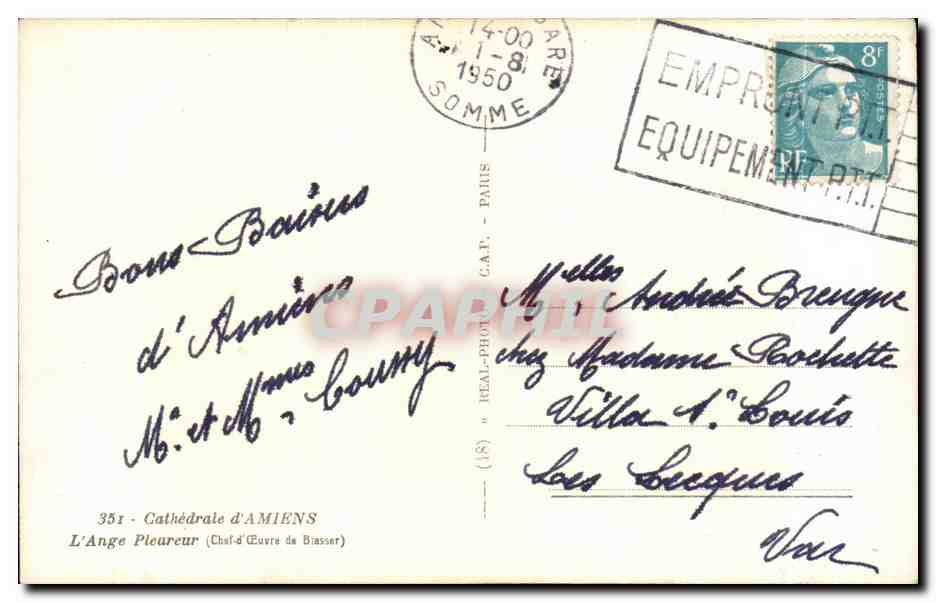 GARE
14-00
1-8
1950
SOMME
EMPRUNT P.T.T.
EQUIPEMENT P.T.T.
8F
POSTES
RF
Bons Baisers
d'Amiens
Mr. et Mmes Coussy
351 - Cathédrale d'AMIENS
L'Ange Pleureur (Chef-d'Œuvre de Blasser)
(48) » REAL-PHOTO C.A.P. - PARIS
CPAPHIL
Melles Andrée Breuque
chez Madame Rochette
Villa St Louis
Les Lecques
Var